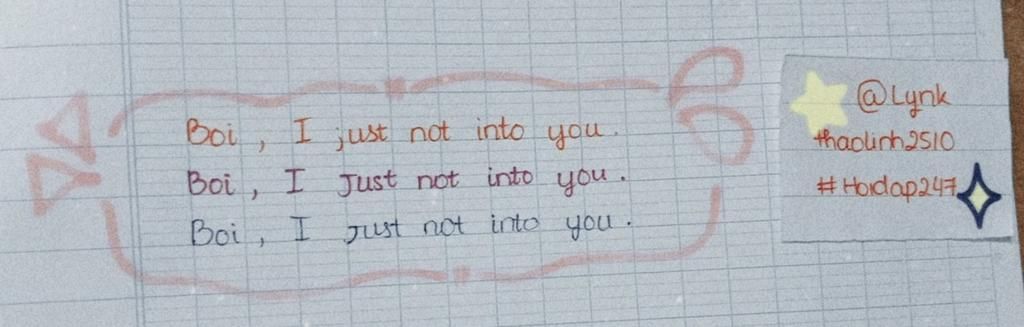 Boi, I just not into you.
Boi, I Just not into you.
Boi, I Just not into you.
@Lynk
thaolinh2510
#Hoidap247